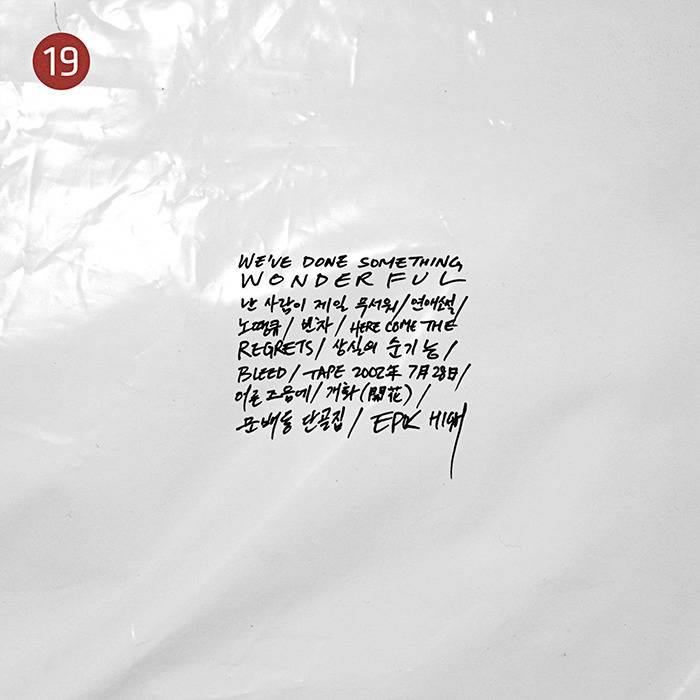 19
WE'VE DONE SOMETHING
WONDERFUL
난 사람이 제일 무서워/연애소설/
노땡큐/빈차/HERE COME THE
REGRETS/상실의 순기능/
BLEED/TAPE 2002年 7月 28日/
어른 즈음에/개화(開花)/
문배동 단골집/EPIK HIGH